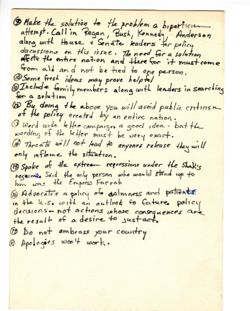 ⑦ Make the solution to the problem a bipartisan
attempt. Call in Reagan, Bush, Kennedy, Anderson
along with House & Senate leaders for policy
discussions on this issue. The need for a solution
the entire nation and therefor it must come
from all and not be tied to one person.
Some fresh ideas may prove helpful
Include family members along with leaders in searching
for a solution
By doing the above you will avoid public criticism
of the policy created by an entire nation.
Hard write letter campaign a good idea - but the
wording of the letter must be very exact.
Threats will not lead to anyones release they will
only inflame the situation.
Spoke of the extreme regressions under the Shah's
regime. Said the only person who would stand up to
him was the Empress Farrah
Advocates a policy of calmness and patience
in the U.S. with an outlook to future policy
decisions - not actions whose consequences are
the result of a desire to just act.
Do not embrass your country
Apologies won't work.